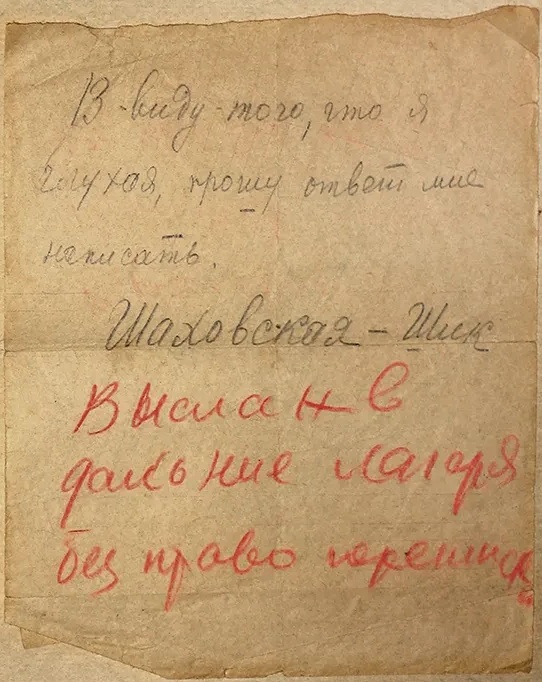 В виду того, что я
глухая, прошу ответ мне
написать.
Шаховская – Шик
Выслан в
дальние лагеря
без право переписк